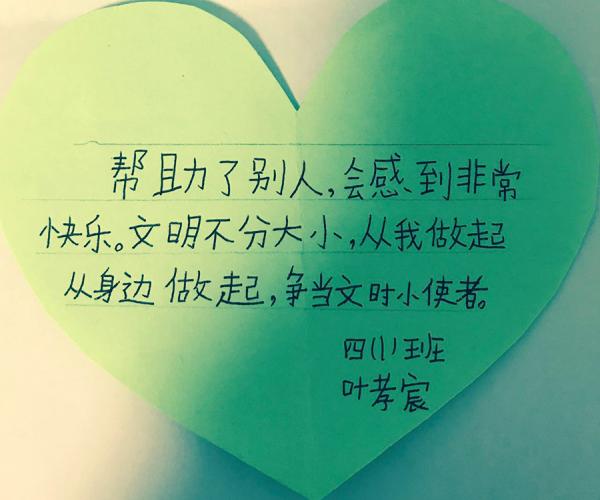 帮助了别人，会感到非常
快乐。文明不分大小，从我做起
从身边做起，争当文时小使者。
四(1)班
叶孝宸